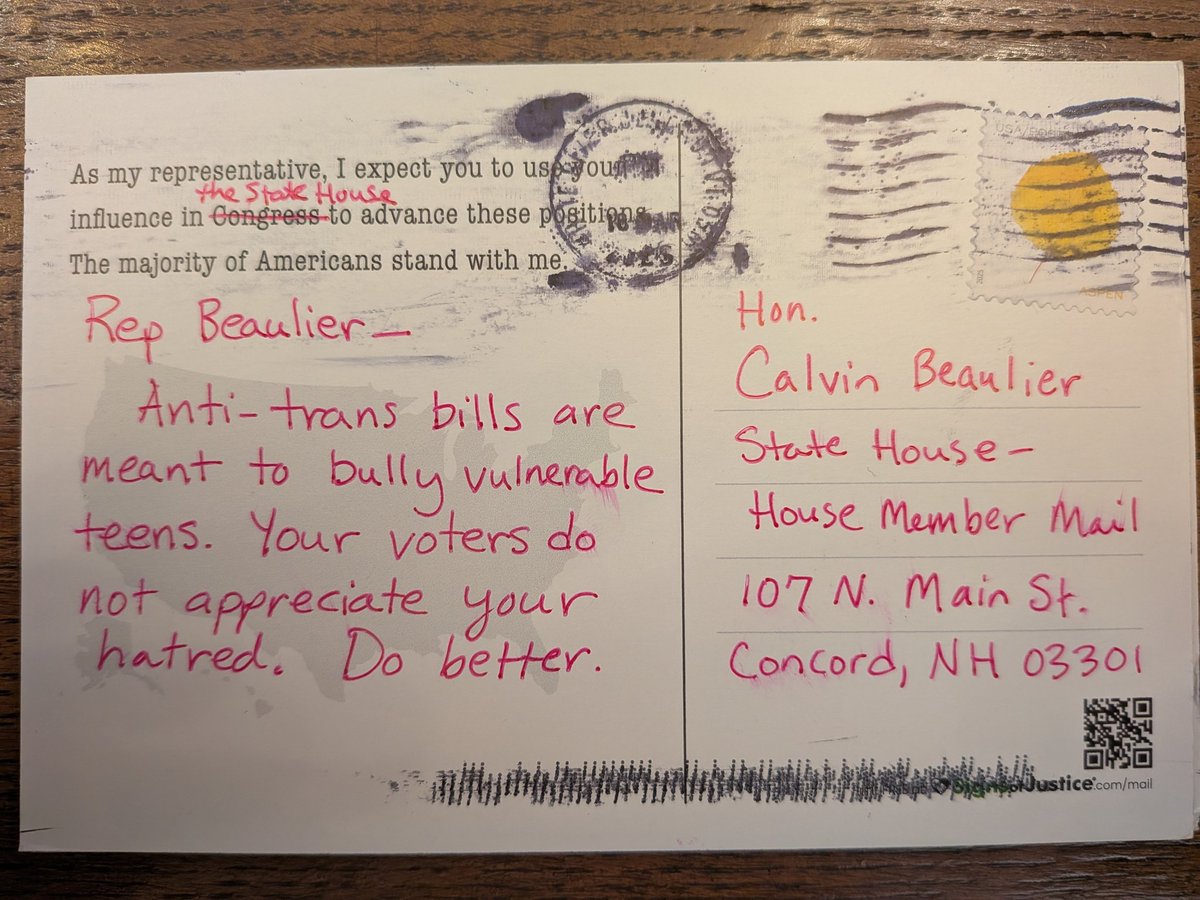 As my representative, I expect you to use your
the State House
influence in Congress to advance these positions.
The majority of Americans stand with me.
Rep Beaulier—
Anti-trans bills are
meant to bully vulnerable
teens. Your voters do
not appreciate your
hatred. Do better.
USA/
2025
ASPEN
Hon.
Calvin Beaulier
State House—
House Member Mail
107 N. Main St.
Concord, NH 03301
Justice.com/mail